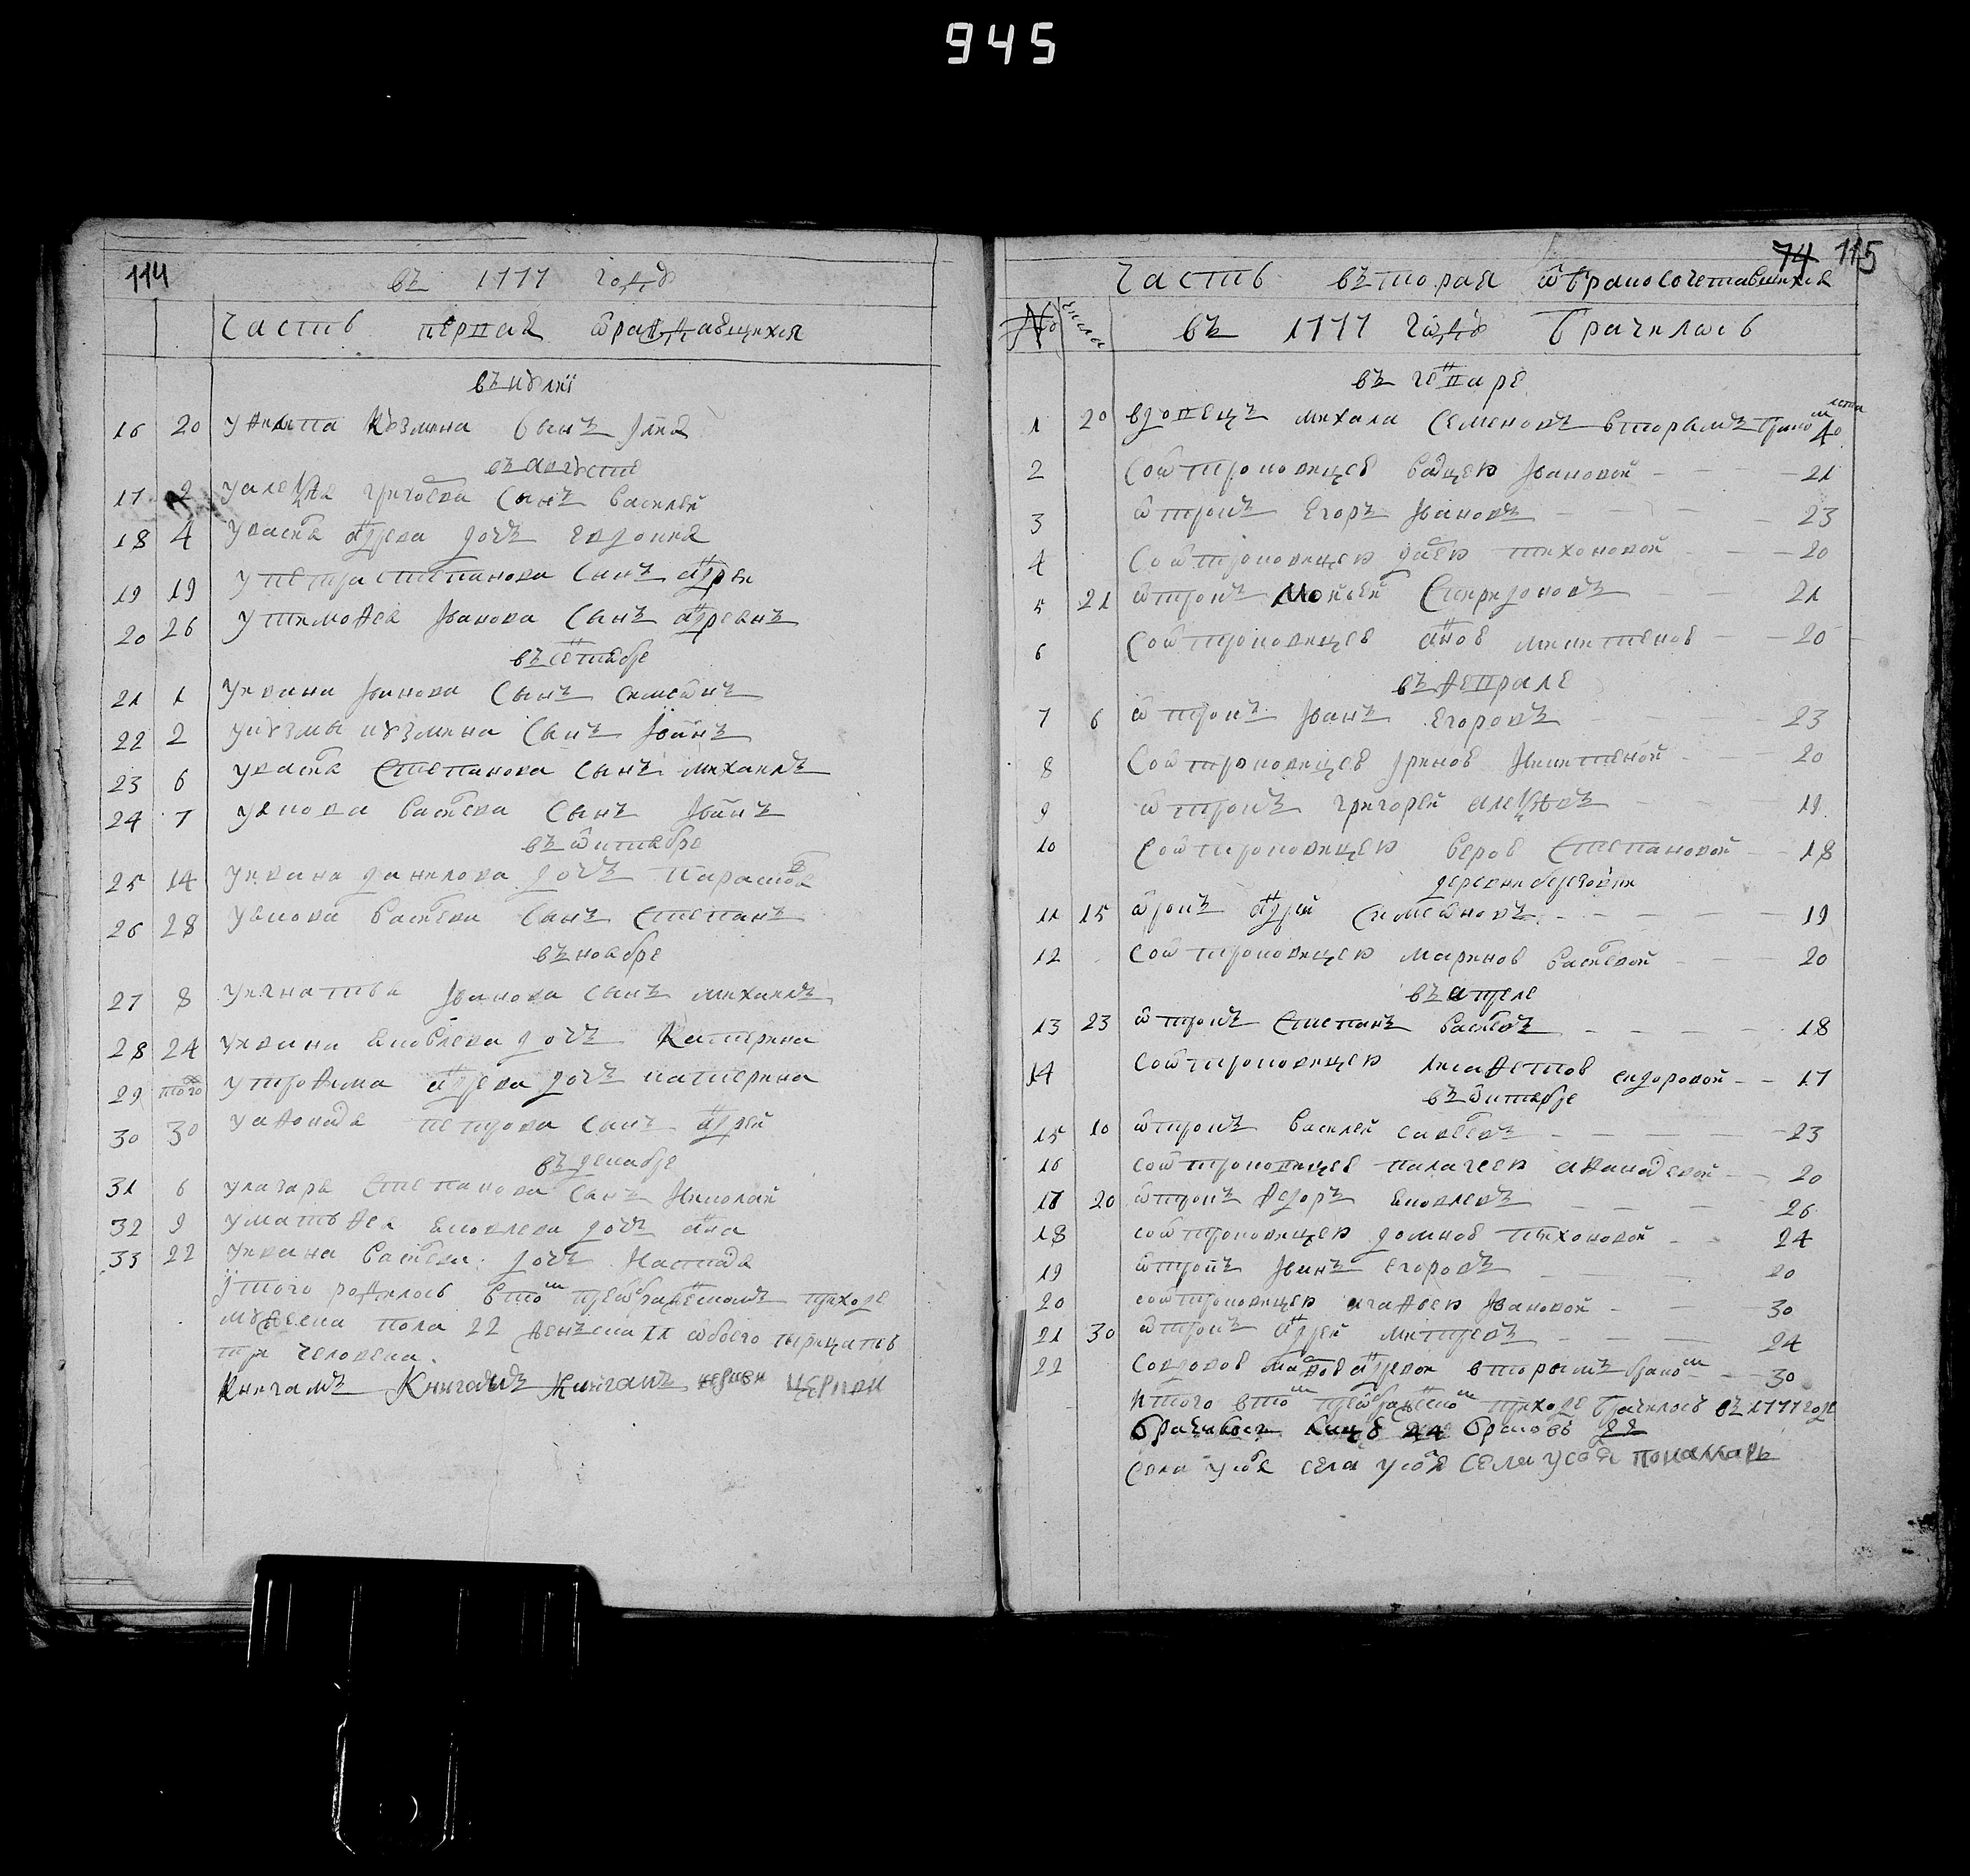 945
114
въ 1777 годꙋ
Часть первая ѡ раждавщихся
въ июлиї
16 20 у Филипа Кузмина сынъ Илия
въ августе
17 2 у алеѯѣя григоева сынъ Василей
18 4 у васиья аⷩдреева дочъ евдокия
19 19 у петра степанова сынъ аⷩдреи
20 26 у тимофея Iванова сынъ аⷩдреянъ
въ сеⷩтябре
21 1 у ивана Iванова сынъ симеѡнъ
22 2 у кузмы кузмина сынъ Iванъ
23 6 у васиья Степанова сынъ михаилъ
24 7 у якова васиьева сынъ Iванъ
въ ѡктябре
25 14 у ивана данилова дочъ парасковья
26 28 у якова васиьева сынъ Степанъ
въ ноябре
27 8 у игнатья Iванова сынъ михаилъ
28 24 у ивана яковлева дочъ Катирина
29 того у трофима аⷩдреева дочъ катерина
30 30 у афонасья петрова сынъ аⷩдрей
въ декабре
31 6 у лазаря Степанова сынъ Николай
32 9 у матьфея яковлева дочъ аⷩна
33 22 у ивана васиьева дочъ Настасья
Iтого родилось в тоⷨ преѡбражеⷩскомъ приходе
мужеска пола 22 женъска 11 ѡбоего тырицать
три человека.
Книгамъ Книгамъ Книгамъ церкви
74 115
Часть въторая ѡ бракосочетавшихся
№ числа въ 1777 годꙋ брачилось
въ геⷩваре
1 20 вдовецъ михаила Семеновъ вторымъ бракоⷨ лета 40
2 СоѡтроковицеЮ Iвановой 21
3 ѡтрокъ Егоръ Iвановъ 23
4 Соѡтроковицею тихоновой 20
5 21 ѡтрокъ Мойсей Спиридоновъ 21
6 Соѡтроковицею аⷩной никитеной 20
въ феврале
7 6 ѡтрокъ Iванъ Егоровъ 23
8 Соѡтроковицею Iриной Никитеной 20
9 ѡтрокъ григорей алеѯѣевъ 19
10 Соѡтроковицею верой Степановой 18
деревни березовки
11 15 ѡтрокъ аⷩдрей Симеѡновъ 19
12 Соѡтроковицею мариной васиьевой 20
въ апреле
13 23 ѡтрокъ Степанъ васиьевъ 18
14 Соѡтроковицею лисафетой сидоровой 17
въ ѡктябре
15 10 ѡтрокъ василей савеевъ 23
16 соѡтроковицею палагеею афонасьевой 20
17 20 ѡтрокъ Федоръ яковлевъ 26
18 соѡтроковицею домной тихоновой 24
19 ѡтрокъ Iванъ егоровъ 20
20 соѡтроковицею агафьею Iвановой 30
21 30 ѡтрокъ аⷩдрей митревъ 24
22 Совдовой аⷩдревой вторымъ бракоⷨ 30
Итого в тоⷨ преѡбражеⷩскоⷨ приходе брачилось въ 1777 годе
брачивося лицъ 44 браковъ 22
Села села Села понамарь